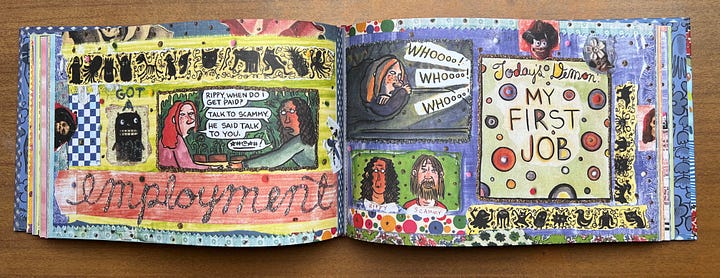 GOT
RIPPY, WHEN DO I
GET PAID?
TALK TO SCAMMY.
HE SAID TALK
TO YOU.
#@*#!
employment
WHOOOO!
WHOOOO!
WHOOOO!
SCAMMY
Today's Demon:
MY
FIRST
JOB